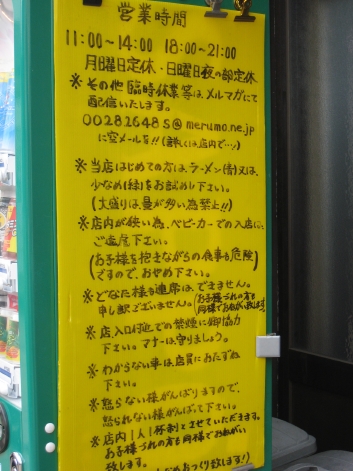 営業時間
11:00～14:00 18:00～21:00
月曜日定休・日曜日夜の部定休
※その他臨時休業等は、メルマガにて
配信いたします。
00282648s@merumo.ne.jp
に空メールを!!(詳しくは店内で…)
※当店はじめての方は、ラーメン(青)又は、
少なめ(緑)をお試め下さい。
(大盛りは量が多い為禁止!!)
※店内が狭い為、ベビーカーでの入店は
ご遠慮下さい。
(お子様を抱きながらの食事も危険)
ですので、おやめ下さい。
※どなた様も連席は、できません。
申し訳ございません。(お子様づれの方も
同様でお願い致します)
※店、入口付近での禁煙に御協力
下さい。マナーは守りましょう。
※わからない事は店員におたずね
下さい。
※怒らない様がんばりますので、
怒られない様がんばって下さい。
※店内1人1杯制とさせていただきます。
お子様づれの方も同様でお願い
致します。